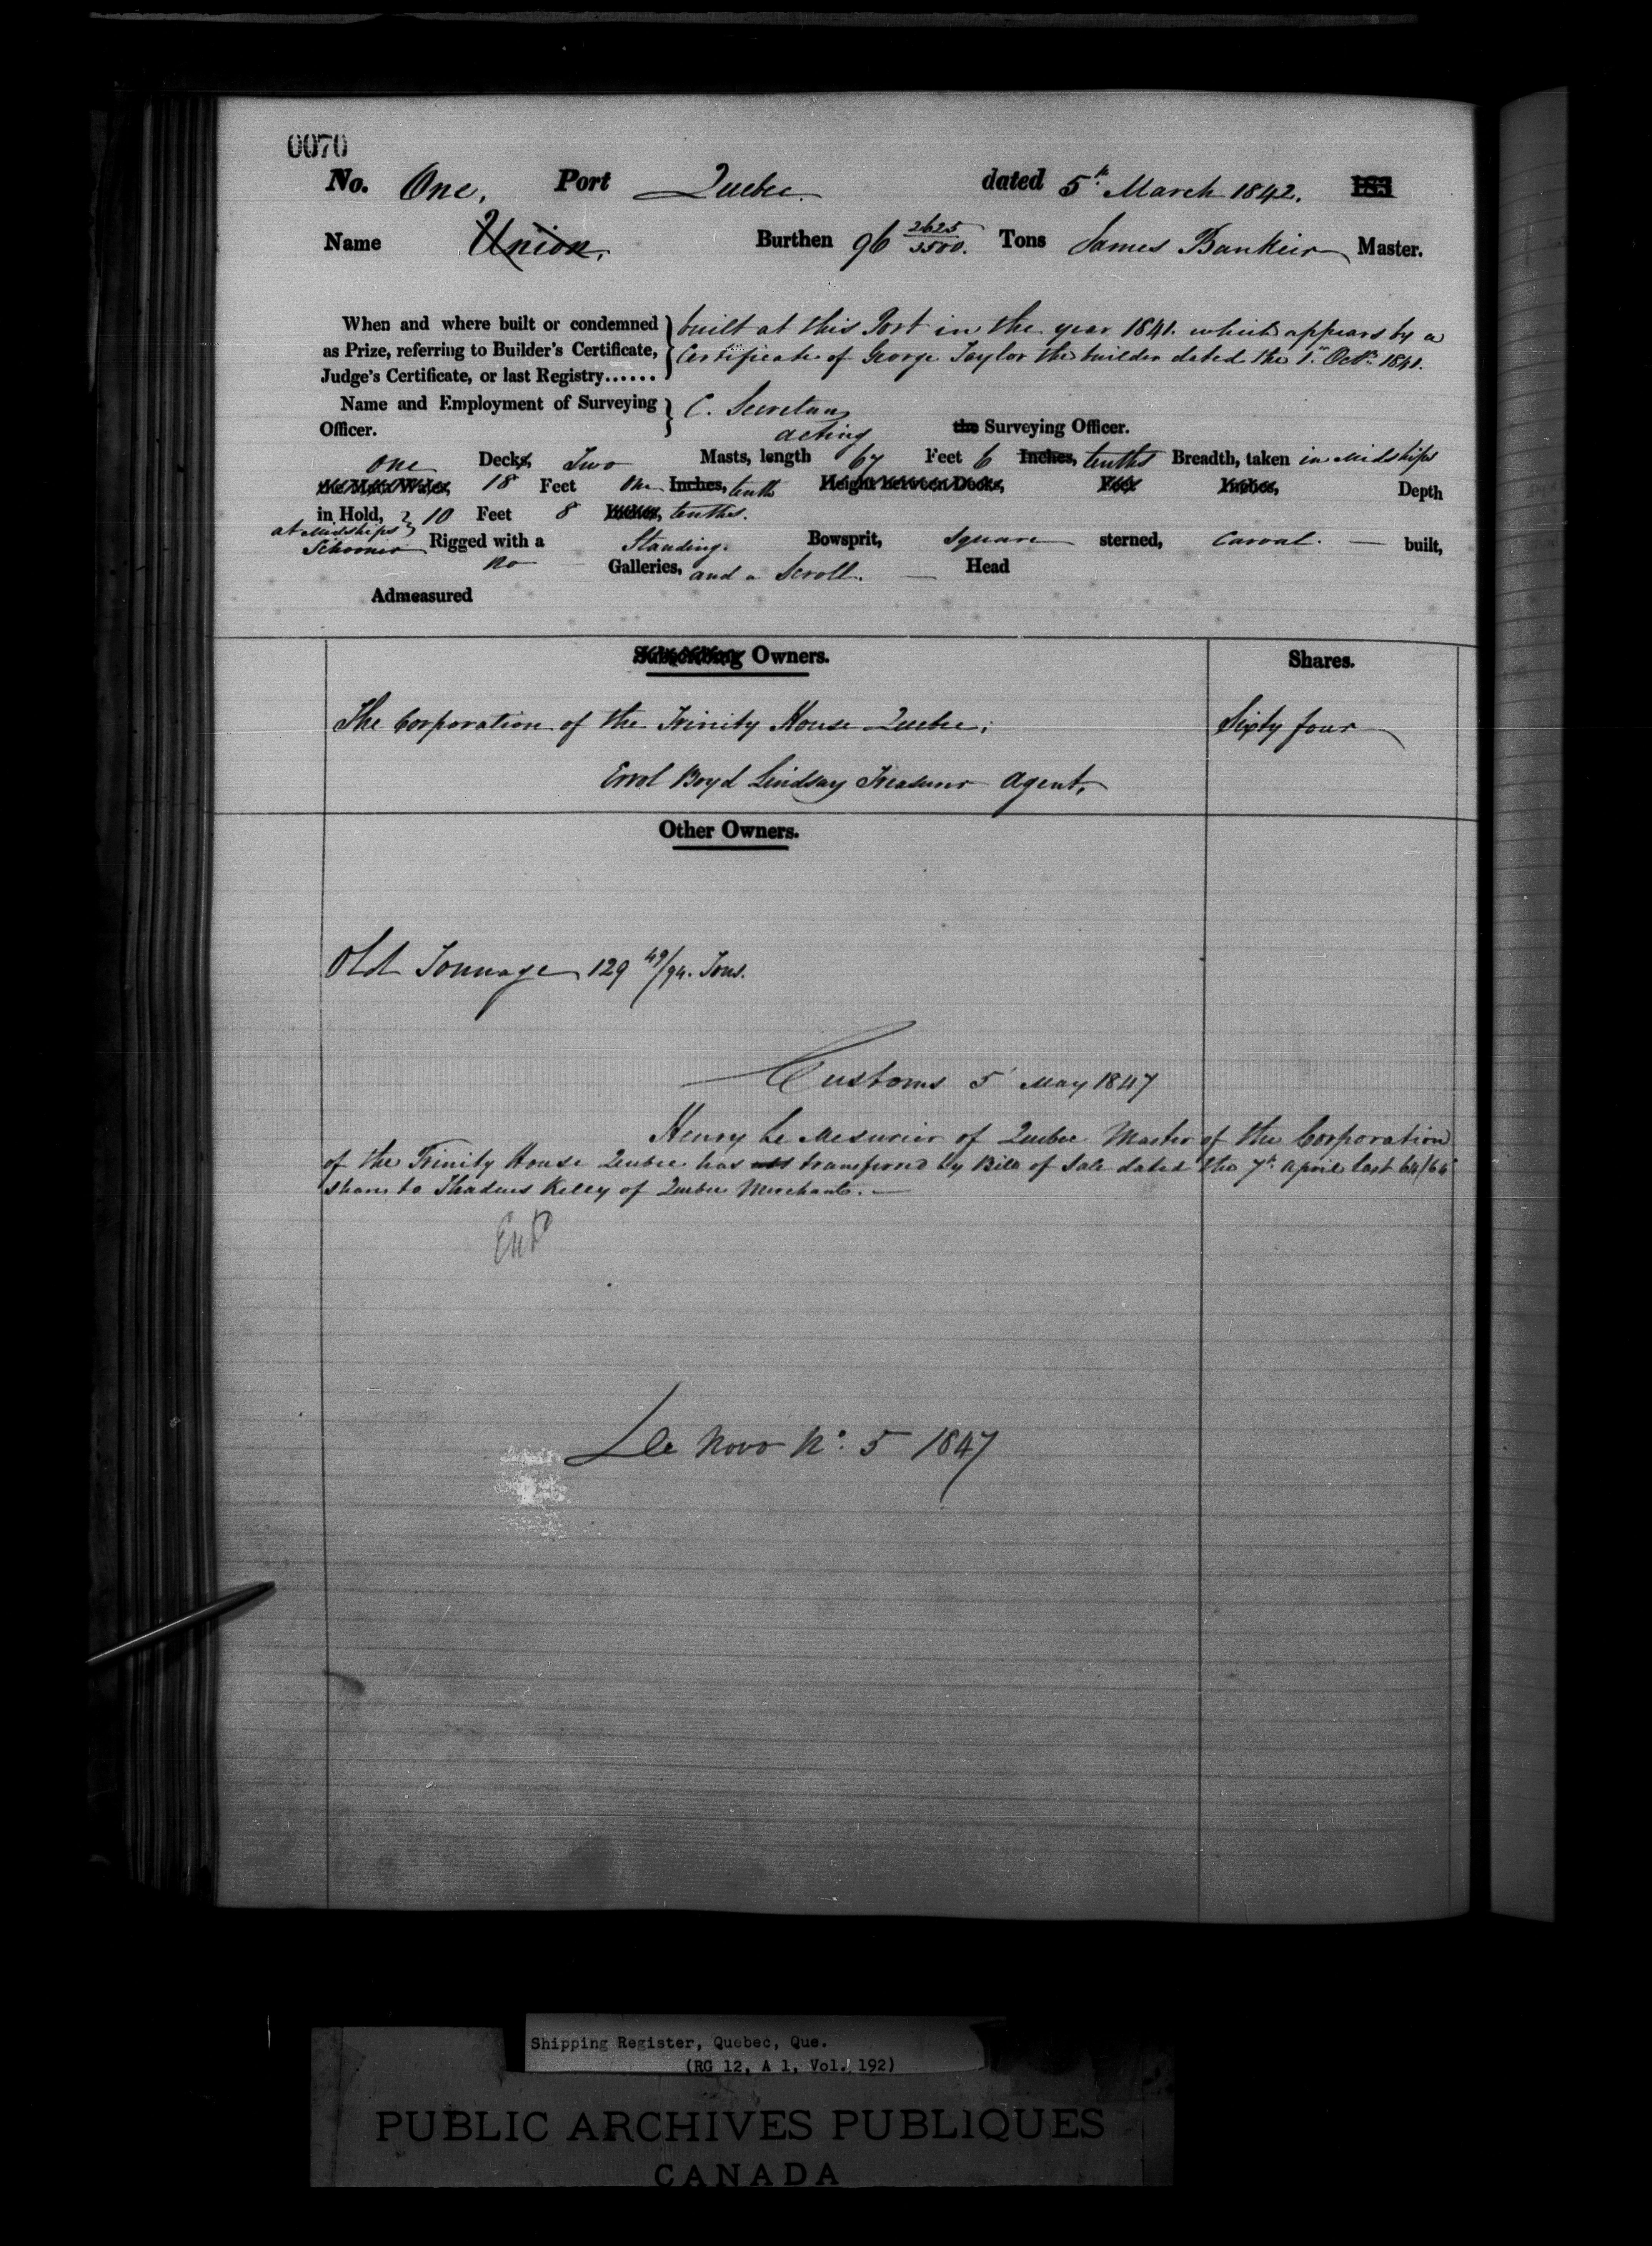 0070
No. One, Port Quebec. dated 5th March 1842. 183
Name Union, Burthen 96 2625/3500. Tons James Bankier Master.
When and where built or condemned built at this Port in the year 1841. which appears by a
as Prize, referring to Builder's Certificate, Certificate of George Taylor the builder dated the 1st Octr. 1841.
Judge's Certificate, or last Registry......
Name and Employment of Surveying C. Secretan
Officer. acting the Surveying Officer.
One Decks, Two Masts, length 67 Feet 6 Inches, tenths Breadth, taken in Midships
the Main Wales, 18 Feet One Inches, tenth Height between Decks, Feet Inches, Depth
in Hold, 10 Feet 8 Inches, tenths.
at Midships
Schooner Rigged with a Standing. Bowsprit, Square sterned, Carval. built,
no Galleries, and a Scroll. Head
Admeasured
Subscribing Owners. Shares.
The Corporation of the Trinity House Quebec; Sixty four
Errol Boyd Lindsay Treasurer Agent,
Other Owners.
Old Tonnage 129 49/94. Tons.
Customs 5 May 1847
Henry Le Mesurier of Quebec Master of the Corporation
of the Trinity House Quebec has transferred by Bill of Sale dated the 7th April last 64/64
shares to Thadeus Kelly of Quebec Merchant.
Entd
De Novo No. 5 1847
Shipping Register, Quebec, Que.
(RG 12, A 1, Vol. 192)
PUBLIC ARCHIVES PUBLIQUES
CANADA